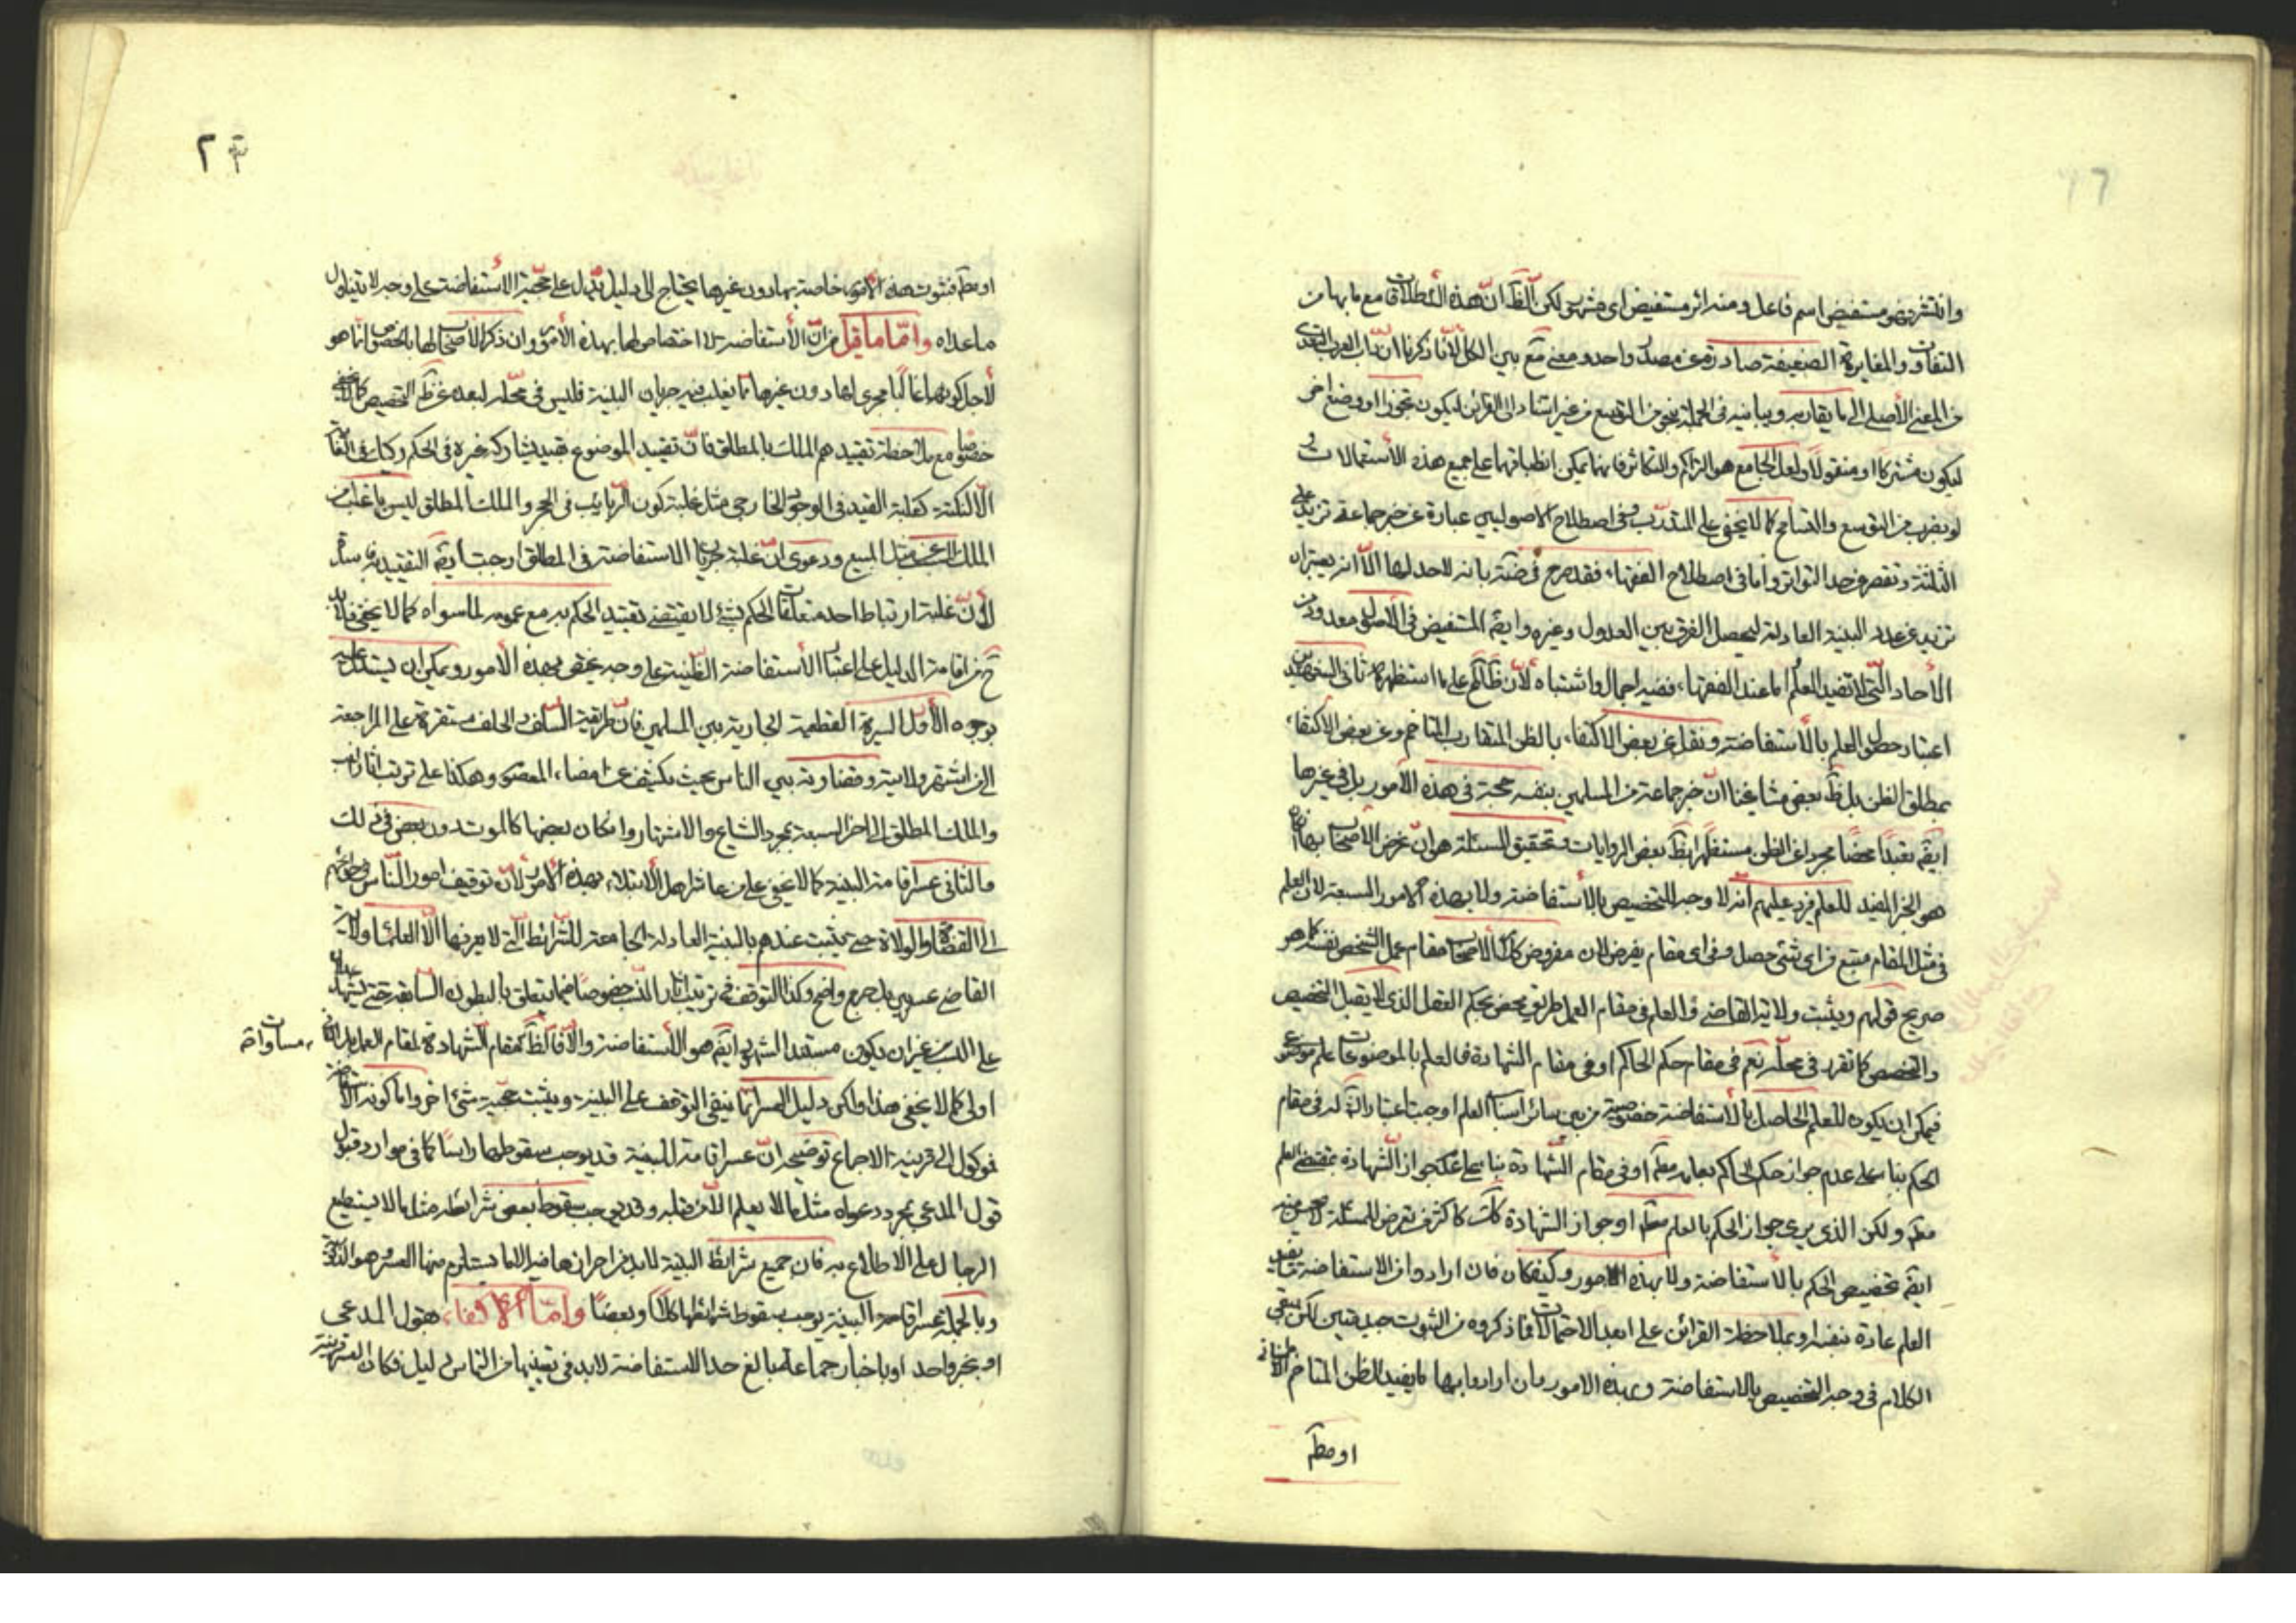 وانتشر فهو مستفيض اسم فاعل ومنه اثر مستفيض اى مشهور لكن الظ انّ هذه الأطلاقات مع ما بها من
التفاوت والمغايرة الضعيفة صادرة عن مصدر واحد ومعنى عم بين الكل لأنا ذكرنا ان داب العرب التعدى
من المعنى الأصلى الى ما يقاربه ويباينه فى الجملة بنحو من التوسع من غير استناد الى القرائن ليكون تجوزا او وضع اخر
ليكون مشتركا او منقولا ولعل الجامع هو التراكم والتكاثر فانهما يمكن انطباقهما على جميع هذه الأستعمالات و
لو بضرب من التوسع والتسامح كما لا يخفى على المتدرّب وفى اصطلاح الاصوليين عبارة عن خبر جماعة تزيد على
الثلثة وتقصر عن حد التواتر واما فى اصطلاح الفقهاء فقد صرح فى ضة بانه لا حد لها الّا انه يعتبر ان
تزيد عن عدد البينة العادلة ليحصل الفرق بين العدول وغيره وايضً المستفيض فى الأصول معدود من
الأحاد الّتى لا تفيد العلم اما عند الفقهاء ففيه اجمال واشتباه لأن ظاهركم على ما استظهره ثانى الشهيدين
اعتبار حصول العلم بالأستفاضة ونقل عن بعض الاكتفاء بالظن المتقارب المتاخم وعن بعض الاكتفاء
بمطلق الظن بل ظ بعض مشايخنا انّ خبر جماعة من المسلمين بنفسه حجة فى هذه الأمور بل فى غيرها
ايضً تعبدًا محضًا مجردا عن الظن مستظهرا بظ بعض الروايات وتحقيق المسئلة هو انّ غرض الأصحاب بها ان
هو الخبر المفيد للعلم فيرد عليهم انه لا وجه للتخصيص بالأستفاضة ولا بهذه الامور السبعة لان العلم
فى مثل المقام متبع من اى شئ حصل وفى اى مقام يفرض لان مفروض كلام الأصحاب مقام عمل الشخص نفسه كما هو
صريح قولهم ويثبت ولاية القاضى والعلم فى مقام العمل طريق محض بحكم العقل الذى لا يقبل التخصيص
والتخصص كما تقرر فى محلّه نعم فى مقام حكم الحاكم او فى مقام الشهادة فالعلم بالموضوعات علم موضوعى
فيمكن ان يكون للعلم الحاصل بالأستفاضة خصوصية من بين سائر اسباب العلم اوجبت اعتبار الشارع له فى مقام
الحكم بناء على عدم جواز حكم الحاكم بعلمه مطم او فى مقام الشهادة بناء على عدم جواز الشهادة بمقتضى العلم
مطم ولكن الذى يرى جواز الحكم بالعلم مطم او جواز الشهادة كك كاكثر من تعرض للمسئلة لا يصح منه
ايضً تخصيص الحكم بالأستفاضة ولا بهذه الأمور وكيفكان فان ارادوا من الاستفاضة ما يفيد
العلم عادة بنفسه او بملاحظة القرائن على ابعد الاحتمالات فما ذكروه من الثبوت جيد متين لكن يبقى
الكلام فى وجه التخصيص بالاستفاضة وبهذه الامور وان ارادوا بها ما يفيد الظن المتاخم
او مطم
او مطم فثبوت هذه الأمور خاصة بها دون غيرها يحتاج الى دليل يدل على حجية الاستفاضة على وجه لا يتناول
ما عداه وامّا ما قيل من انّ الأستفاضة لا اختصاص لها بهذه الأمور وان ذكر الأصحاب لها بالخصوص انما هو
لأجل كونها غالبًا مجرى لها دون غيرها مما يغلب فيه جريان البينة فليس فى محلّه لبعده عن ظ التخصيص كما لا يخفى
خصوصا مع ملاحظة تقييدهم الملك بالمطلق فان تقييد الموضوع بقيد يشاركه غيره فى الحكم ركيك فى الغاية
الّا لنكتة كغلبة القيد فى الوجود الخارجى مثل غلبة كون الربائب فى الحجر والملك المطلق ليس باغلب من
الملك المسبب مثل المبيع ودعوى انّ غلبة جريان الاستفاضة فى المطلق اوجبت أيضً التقييد به
لأنّ غلبة ارتباط احد متعلقات الحكم بشئ لا يقتضى تقييد الحكم به مع عمومه لما سواه كما لا يخفى فلا بد
ح من اقامة الدليل على اعتبار الأستفاضة الظنية على وجه يختص بهذه الأمور ويمكن ان يستدل عليه
بوجوه الأول السيرة القطعية الجارية بين المسلمين فان طريقة السلف والخلف مستقرة على المراجعة
الى من اشتهر ولايته وقضاوته بين الناس بحيث يكشف عن امضاء المعصوم وهكذا على ترتيب اثار النسب
والملك المطلق الى اخر السبعة بمجرد الشياع والاشتهار وامكان بعضها كالموت دون بعض فى ذلك
والثانى عسر اقامة البينة كما لا يخفى على من عاشر اهل الأبتلاء بهذه الأمور لأنّ توقيف امور النّاس وحوائجهم
الى القضاة والولاة حتى يثبت عندهم بالبينة العادلة الجامعة للشرائط الّتى لا يعرفها الّا العلماء ولاية
القاضى عسر بل حرج واضح وكذا التوقف فى ترتيب اثار النسب خصوصًا فيما يتعلق بالبطون السابقة حتى يشهد عدلان
على النسب من غير ان يكون مستند الشهود ايضً هو الأستفاضة والّا فالظ مقام الشهادة لمقام العمل بل الثانى
مساواة
اولى كما لا يخفى هذا ولكن دليل العسر انما ينفى التوقف على البينة ويثبت حجية شئ اخر واما كونه الأستفاضة
فموكول الى قرينة الاجماع توضيحه انّ عسر اقامة البينة قد يوجب سقوطها راسًا كما فى موارد قبول
قول المدعى بمجرد دعواه مثل ما لا يعلم الّا من قبله وقد يوجب سقوط بعض شرائطه مثل ما لا يستطيع
الرجال على الاطلاع به فان جميع شرائط البينة لا بد من احرازها فيه الا ما يستلزم منها العسر وهو الذكورة
وبالجملة عسر اقامة البينة يوجب سقوط شرائطها كلًّا او بعضًا وامّا الأكتفاء بقول المدعى
او بخبر واحد او باخبار جماعة بالغ حد الاستفاضة لا بد فى تعيينها من التماس دليل فكان العسر قرينة